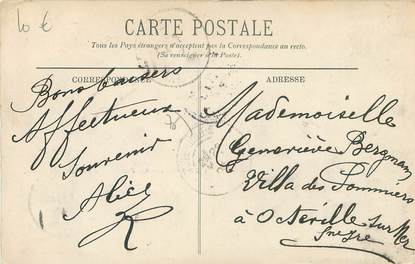 10 €
CARTE POSTALE
Tous les Pays étrangers n'acceptent pas la Correspondance au recto.
(Se renseigner à la Poste).
CORRESPONDANCE
Bons baisers
Affectueux
Souvenir
Alice
ADRESSE
Mademoiselle
Geneviève Bergman
Villa des Pommiers
à Octeville sur Mer